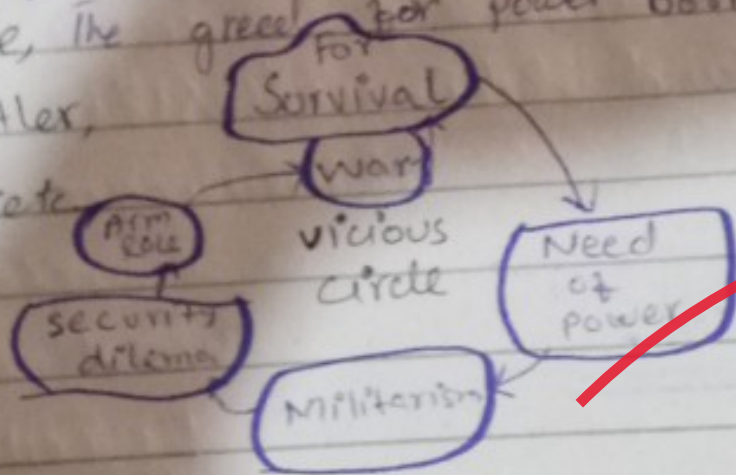 e, The greed for power
For
Survival
tler,
war
etc
Arm
Race
vicious
circle
Need
of
power
security
dilema
Militarism